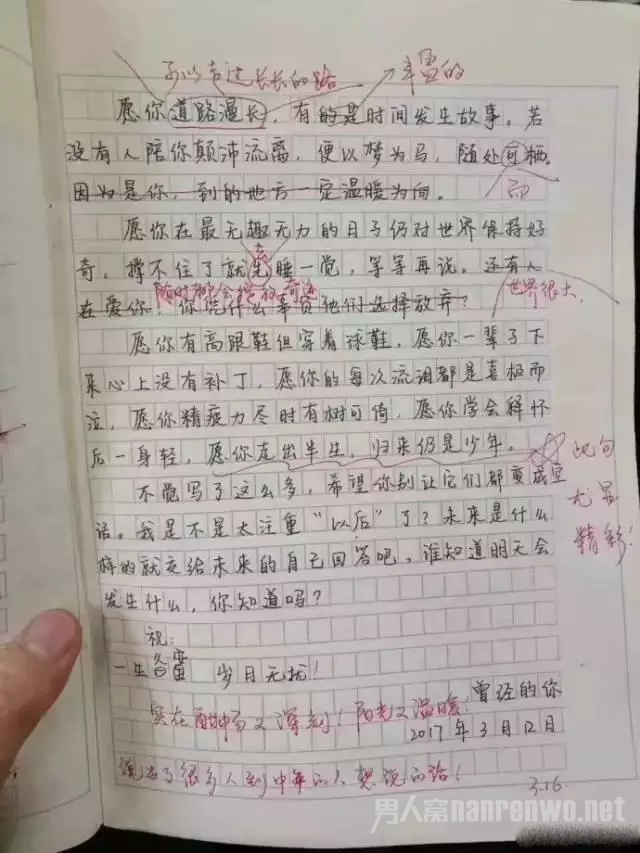 可以走过长长的路 丰富的
愿你道路漫长，有的是时间发生故事。若
没有人陪你颠沛流离，便以梦为马，随处可栖。
因为是你，到的地方一定温暖为向。 而
愿你在最无趣无力的日子仍对世界保持好
奇，撑不住了就先睡一觉，等等再说。还有人
随时都会提放奇迹 世界很大，
在爱你！你凭什么辜负他们选择放弃？
愿你有高跟鞋但穿着球鞋，愿你一辈子下
来心上没有补丁，愿你的每次流泪都是喜极而
泣，愿你精疲力尽时有树可倚，愿你学会释怀
后一身轻，愿你走出半生，归来仍是少年。 此句
不觉写了这么多，希望你别让它们都变成空 尤显
话。我是不是太注重“以后”了？未来是什么 精彩！
样的就交给未来的自己回答吧，谁知道明天会
发生什么，你知道吗？
祝：
一生备蜜 岁月无扰！
曾经的你
实在酣畅又深刻！阳光又温暖！
2017年3月12日
说出了很多人到中年的人想说的话！
3.16
男人窝nanrenwo.net